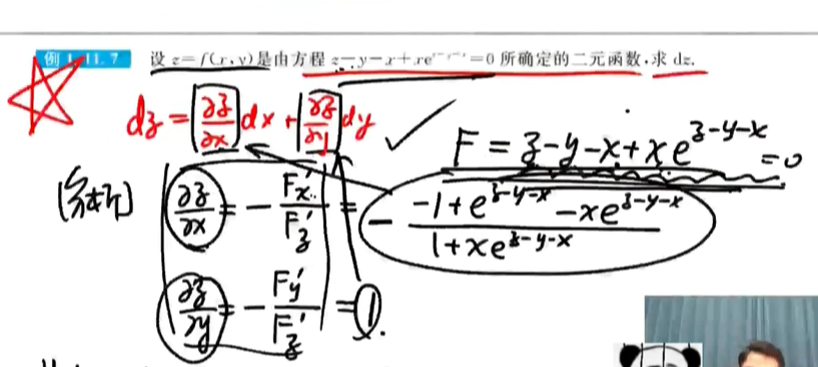 例 1.11.7 设 z=f(x,y)是由方程 z-y-x+xe^{z-y-x}=0 所确定的二元函数,求 dz.
dz = ∂z/∂x dx + ∂z/∂y dy ✓
F = z-y-x+xe^{z-y-x} = 0
[分析] ∂z/∂x = - F'x/F'z = - (-1+e^{z-y-x}-xe^{z-y-x})/(1+xe^{z-y-x})
∂z/∂y = - F'y/F'z = 1.